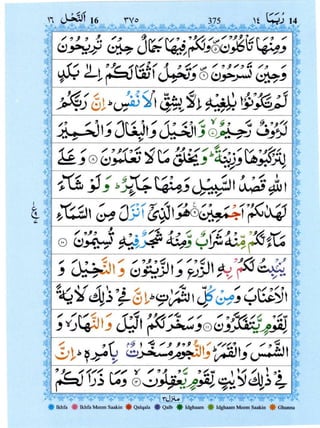 ١٦ اَلنَّحْل 16 ٣٧٥ 375 رُبَمَا ١٤ 14
وَمِنْهَا تَاْكُلُوْنَ ۝ وَلَكُمْ فِيْهَا جَمَالٌ حِيْنَ تُرِيْحُوْنَ
وَحِيْنَ تَسْرَحُوْنَ ۝ وَتَحْمِلُ اَثْقَالَكُمْ اِلٰى بَلَدٍ
لَّمْ تَكُوْنُوْا بٰلِغِيْهِ اِلَّا بِشِقِّ الْاَنْفُسِ ؕ اِنَّ رَبَّكُمْ
لَرَءُوْفٌ رَّحِيْمٌ ۝ وَّالْخَيْلَ وَالْبِغَالَ وَالْحَمِيْرَ
لِتَرْكَبُوْهَا وَزِيْنَةً ؕ وَيَخْلُقُ مَا لَا تَعْلَمُوْنَ ۝ وَعَلَى
اللّٰهِ قَصْدُ السَّبِيْلِ وَمِنْهَا جَآئِرٌ ؕ وَلَوْ شَآءَ
لَهَدٰىكُمْ اَجْمَعِيْنَ ۝ هُوَ الَّذِيْۤ اَنْزَلَ مِنَ السَّمَآءِ
مَآءً لَّكُمْ مِّنْهُ شَرَابٌ وَّمِنْهُ شَجَرٌ فِيْهِ تُسِيْمُوْنَ ۝
يُنْۢبِتُ لَكُمْ بِهِ الزَّرْعَ وَالزَّيْتُوْنَ وَالنَّخِيْلَ وَ
الْاَعْنَابَ وَمِنْ كُلِّ الثَّمَرٰتِ ؕ اِنَّ فِيْ ذٰلِكَ لَاٰيَةً
لِّقَوْمٍ يَّتَفَكَّرُوْنَ ۝ وَسَخَّرَ لَكُمُ الَّيْلَ وَالنَّهَارَ ۙ وَ
الشَّمْسَ وَالْقَمَرَ ؕ وَالنُّجُوْمُ مُسَخَّرٰتٌۢ بِاَمْرِهٖ ؕ اِنَّ
فِيْ ذٰلِكَ لَاٰيٰتٍ لِّقَوْمٍ يَّعْقِلُوْنَ ۝ وَمَا ذَرَاَ لَكُمْ
منزل ٣
Ikhfa Ikhfa Meem Saakin Qalqala Qalb Idghaam Idghaam Meem Saakin Ghunna